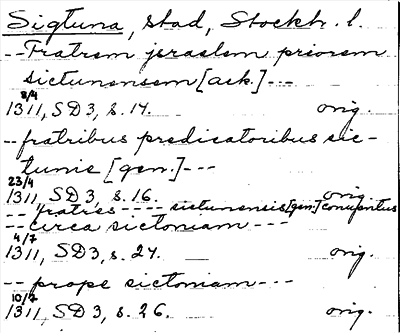 Sigtuna, stad, Stockh. l.
-- Fratrem jsraelem priorem
sictunensem [ack.] ---
8/4
1311, SD 3, s. 14. orig.
-- fratribus predicatoribus sic-
tunie [gen.] ---
23/4
1311, SD 3, s. 16. orig.
-- fratres ---- sictunensis [gen.] conventus
-- circa sictoniam ---
4/7
1311, SD 3, s. 24. orig.
-- prope sictoniam ---
10/7
1311, SD 3, s. 26. orig.